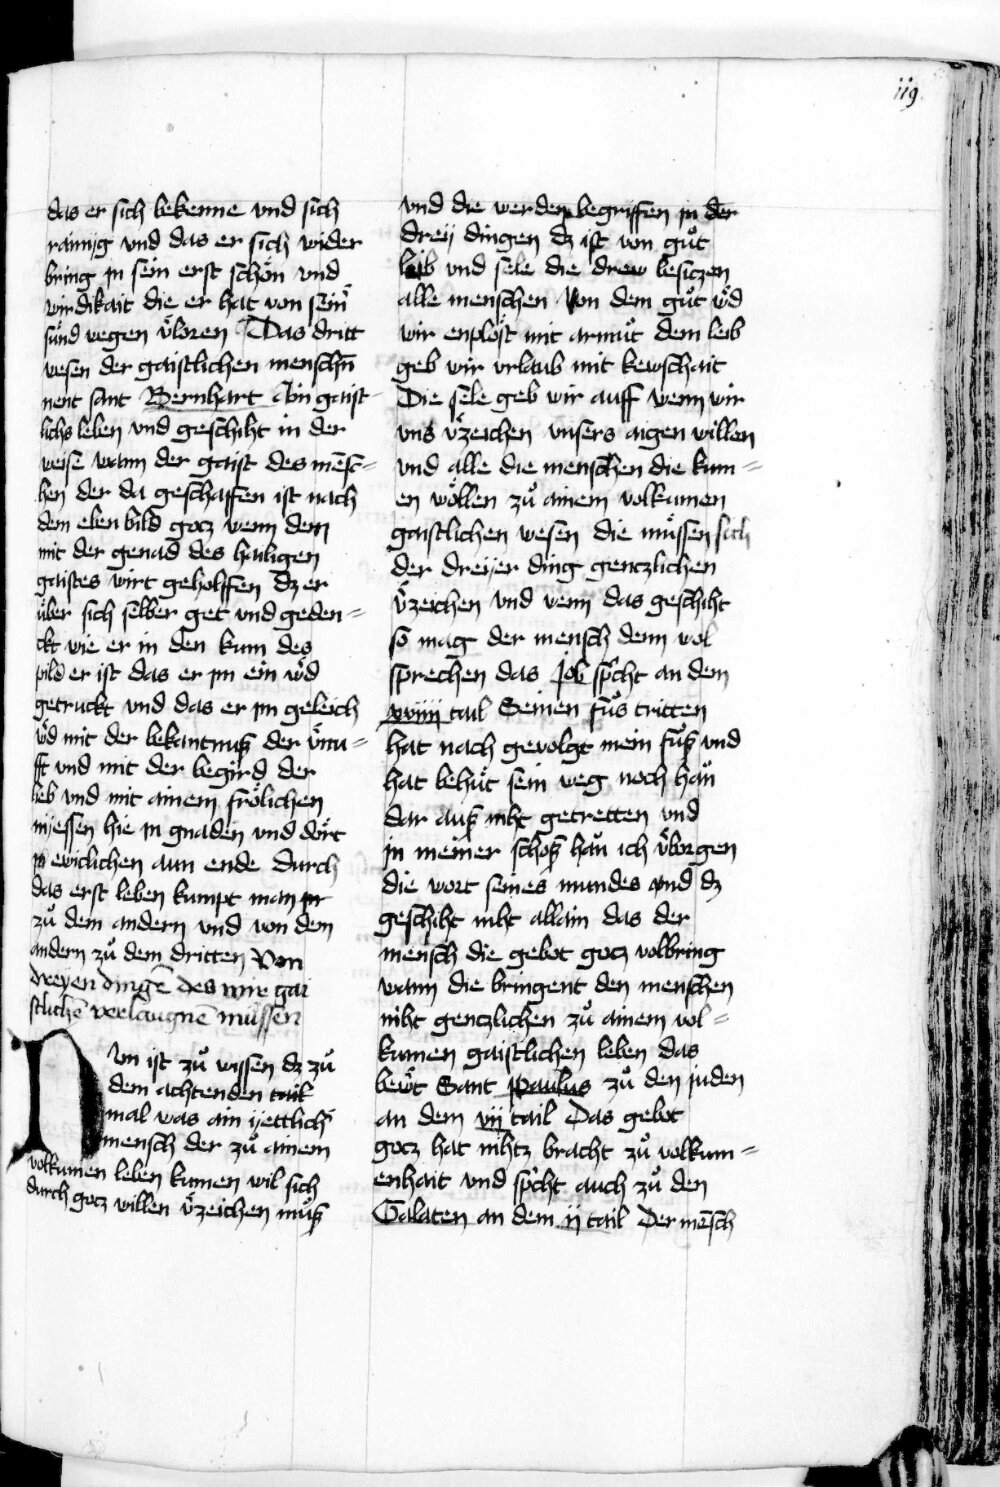 119
das er sich bekenne vnd sich
rainig vnd das er sich wider
bring in sein erst schön vnd
wirdikait die er hat von seinˀ
sünd wegen v̈loren Das dritt
wesen der gaistlichen menschn̄
nent sant Bernhart Ain gaist
lichs leben vnd geschiht in der
weise wann der gaist des mēsc=
hen der da geschaffen ist nach
dem eben bild gocz wenn dem
mit der genad des hailigen
gaistes wirt geholffen dz er
über sich selber get vnd geden=
ckt wie er in den kum des
pild er ist das er im ein wˀd
getruckt vnd das er im geleich
wˀd mit der bekantnuß der vˀnu=
fft vnd mit der begird der
lieb vnd mit ainem frölichen
niessen hie in gnaden vnd dört
in ewiclichen aun ende Durch
das erst leben kumpt man
zů dem andern vnd von dem
andern zů dem dritten Von
dreyen dingē des wir gai
stlichē verlaugnē müssen
Nvn ist zů wissen dz zů
dem achtenden tail
mal was ain yettlichˀ
mensch der zů ainem
volkumen leben kumen wil sich
durch gocz willen vˀzeichen můß
vnd die werden begriffen in der
dreÿ dingen dz ist von gůt
leib vnd sele die drew besiczen
alle menschen Von dem gůt wˀd
wir enplöst mit armůt dem leib
geb wir vrlaub mit kewschait
Die sele geb wir auff wenn wir
vns vˀzeichen vnsers aigen willen
vnd alle die menschen die kum=
en wöllen zů ainem volkumen
gaistlichen wesen die müssen sich
der dreyer ding genczlichen
vˀzeichen vnd wenn das geschiht
so mag der mensch denn wol
sprechen das Job spˀcht an dem
xxiij tail Seinen fůs tritten
hat nach gevolgt mein fůß vnd
hat behůt sein weg noch han
dar auß niht getretten vnd
in meiner schoß han ich vˀborgen
die wort seines mundes vnd dz
geschiht niht allain das der
mensch die gebot gocz volbring
wann die bringent den menschen
niht genczlichen zů ainem vol=
kumen gaistlichen leben das
bewˀt Sant Paulus zů den juden
an dem vij tail Das gebot
gocz hat nihtz bracht zů volkum=
enhait vnd spˀcht auch zů den
Galaten an dem ij tail Der mēsch